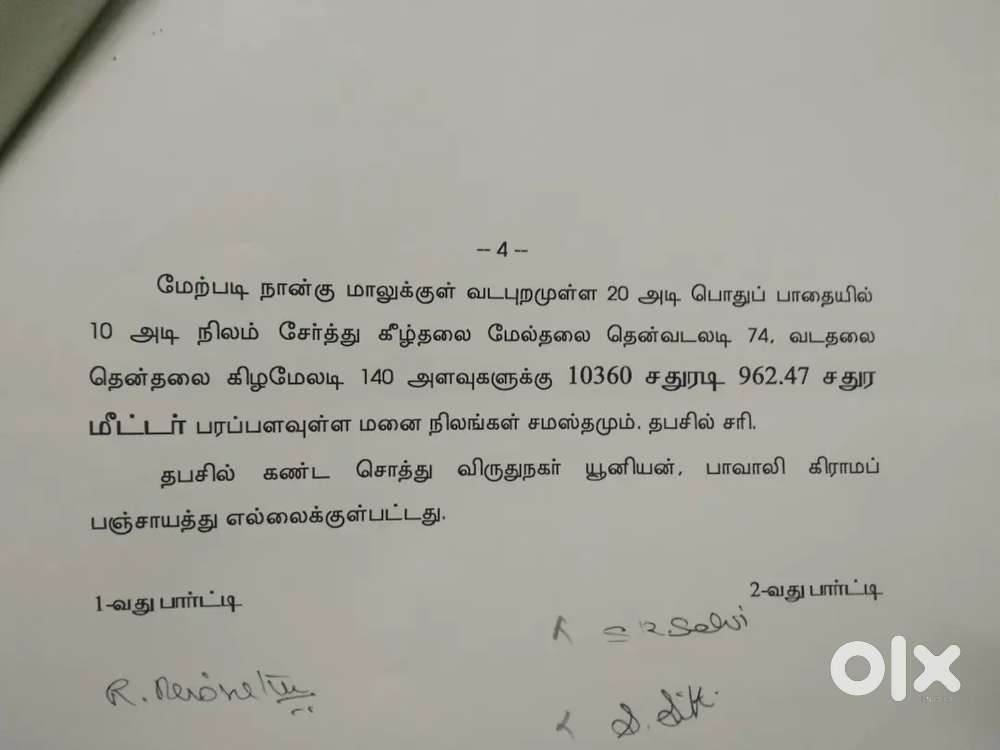 -- 4 --
மேற்படி நான்கு மாலுக்குள் வடபுறமுள்ள 20 அடி பொதுப் பாதையில்
10 அடி நிலம் சேர்த்து கீழ்தலை மேல்தலை தென்வடலடி 74, வடதலை
தென்தலை கிழமேலடி 140 அளவுகளுக்கு 10360 சதுரடி 962.47 சதுர
மீட்டர் பரப்பளவுள்ள மனை நிலங்கள் சமஸ்தமும். தபசில் சரி.
தபசில் கண்ட சொத்து விருதுநகர் யூனியன், பாவாலி கிராமப்
பஞ்சாயத்து எல்லைக்குள்பட்டது.
1-வது பார்ட்டி
2-வது பார்ட்டி
Selvi
R.
S.
olx